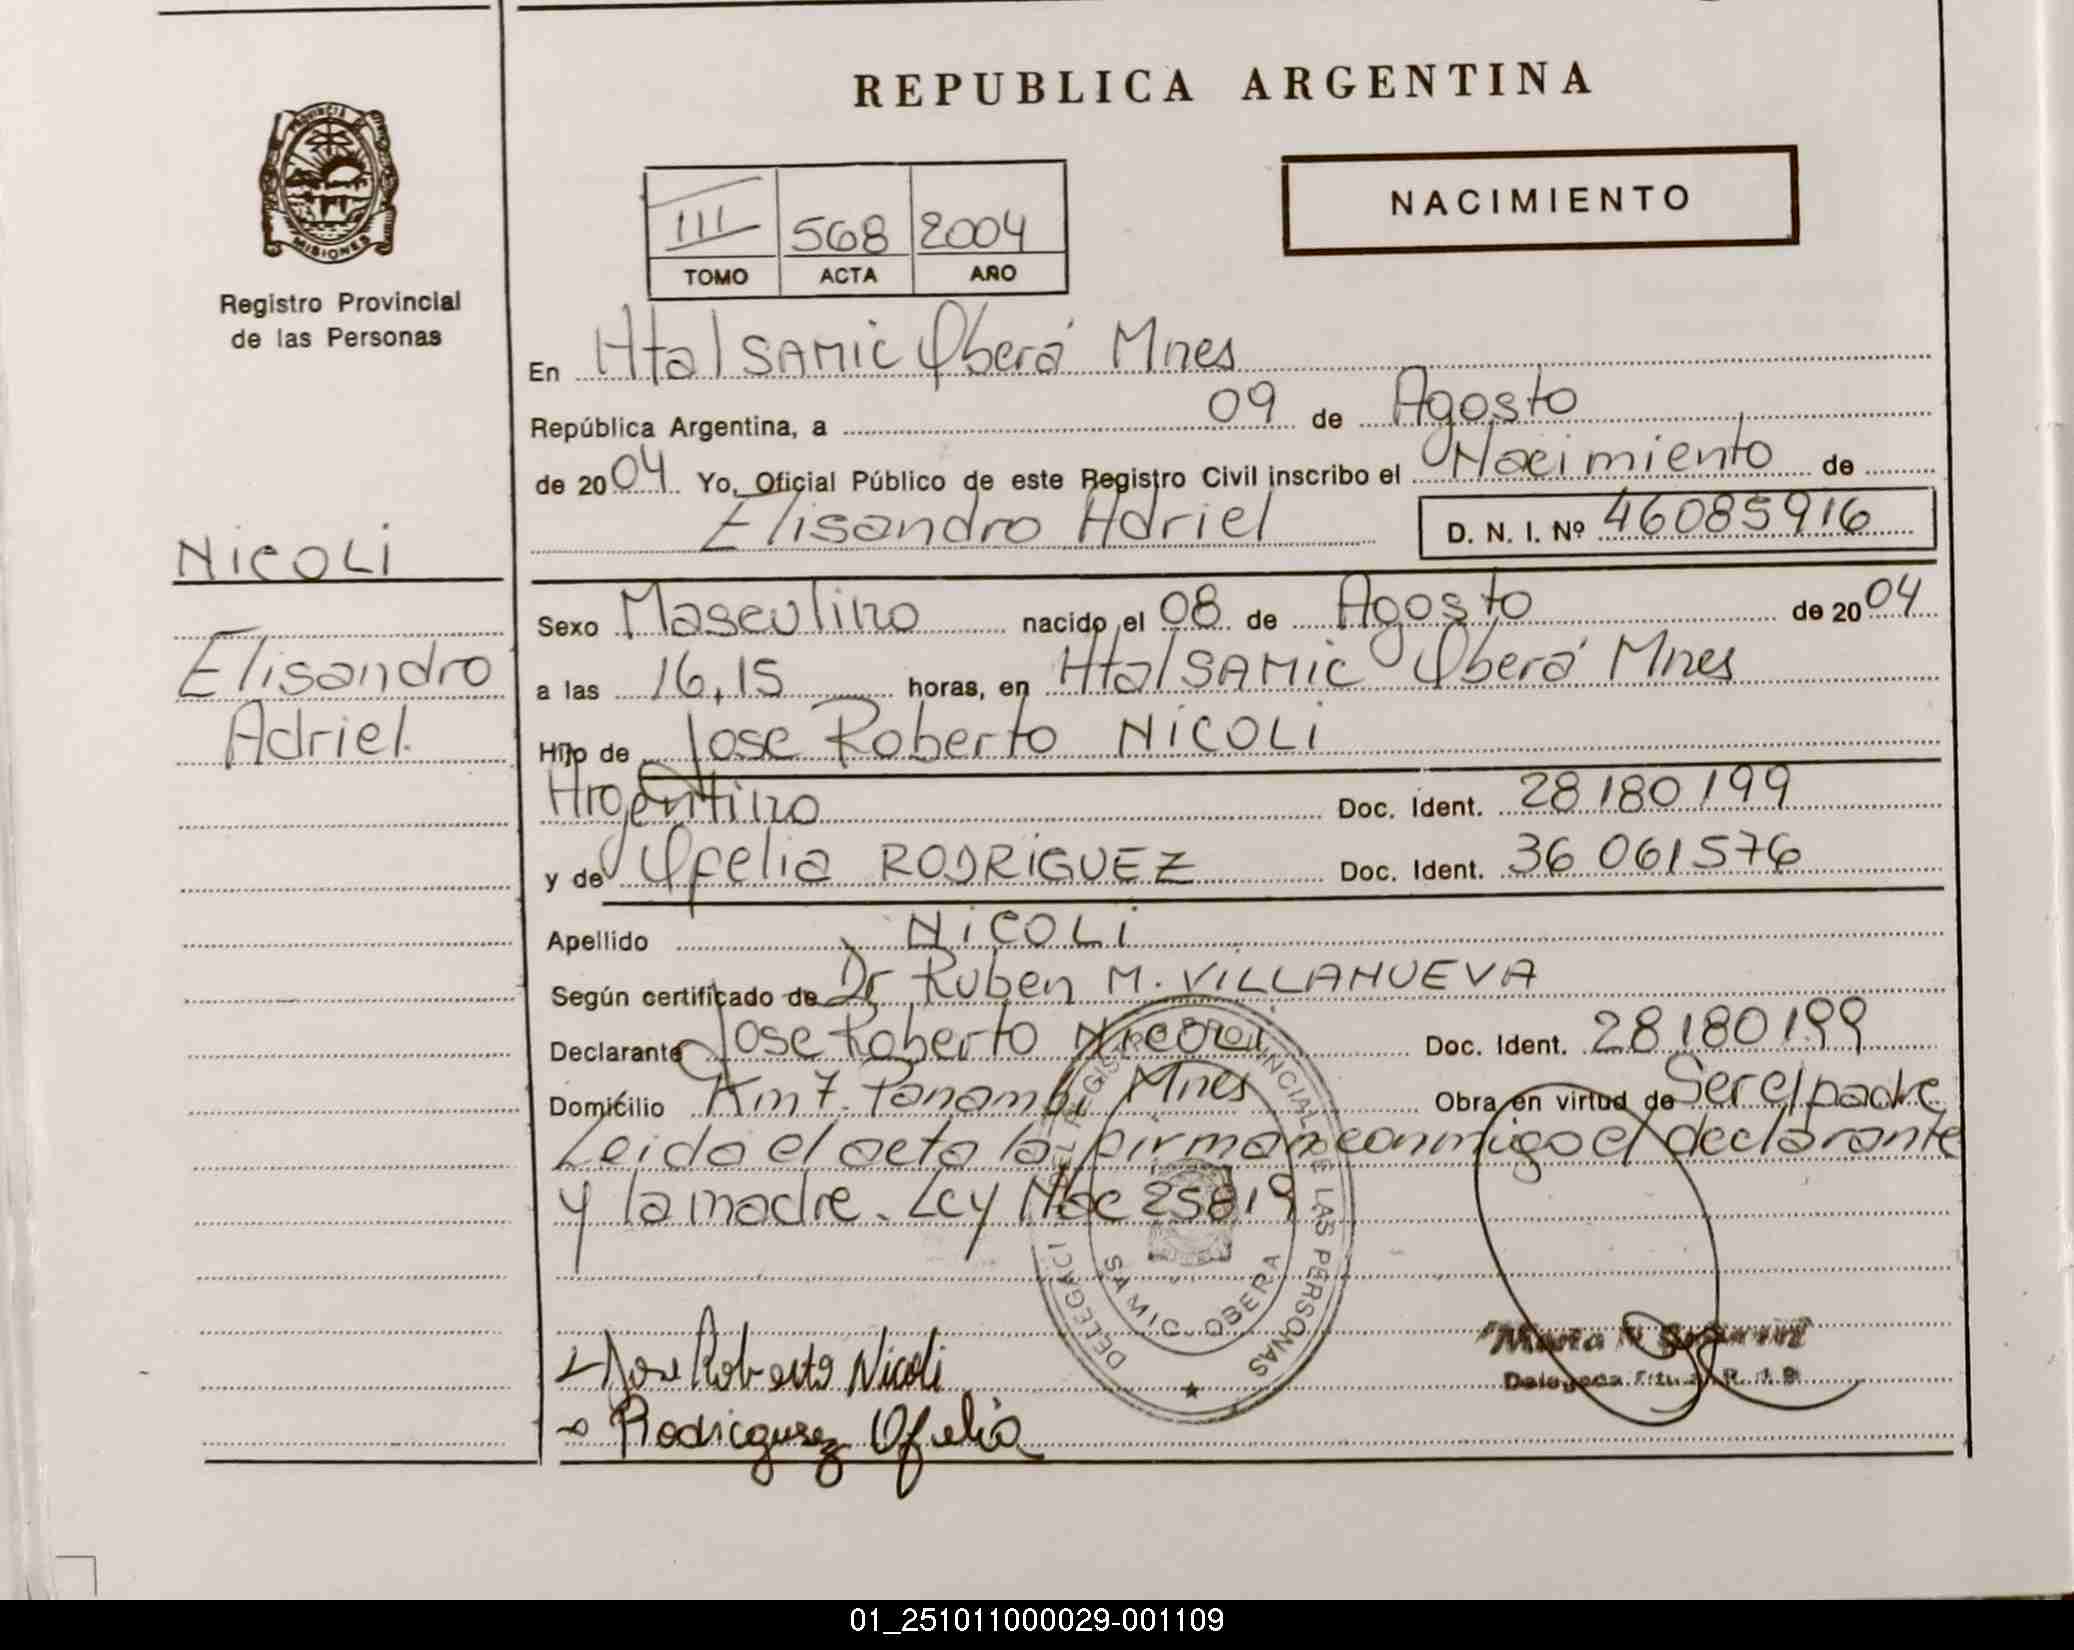 REPUBLICA ARGENTINA
PROVINCIA DE
MISIONES
Registro Provincial
de las Personas
NACIMIENTO
III 568 2004
TOMO ACTA AÑO
En Htal SAMIC Oberá Mnes
República Argentina, a 09 de Agosto
de 2004 Yo, Oficial Público de este Registro Civil inscribo el Nacimiento de
Elisandro Adriel D. N. I. Nº 46085916
NICOLI
Elisandro
Adriel.
Sexo Masculino nacido el 08 de Agosto de 2004
a las 16,15 horas, en Htal SAMIC Oberá Mnes
Hijo de Jose Roberto NICOLI
Argentino Doc. Ident. 28 180 199
y de Ofelia RODRIGUEZ Doc. Ident. 36 061576
Apellido NICOLI
Según certificado de Dr Ruben M. VILLANUEVA
Declarante Jose Roberto Nicoli Doc. Ident. 28 180 199
Domicilio Km 7. Panambi Mnes Obra en virtud de Ser el padre
Leida el acta la firman conmigo el declarante
y la madre. Ley Nac 25819
DELEGACI DEL REGISTRO PROVINCIAL DE LAS PERSONAS
SAMIC - OBERA
Jose Roberto Nicoli
Rodriguez Ofelia
Maria
Delegada
01_251011000029-001109